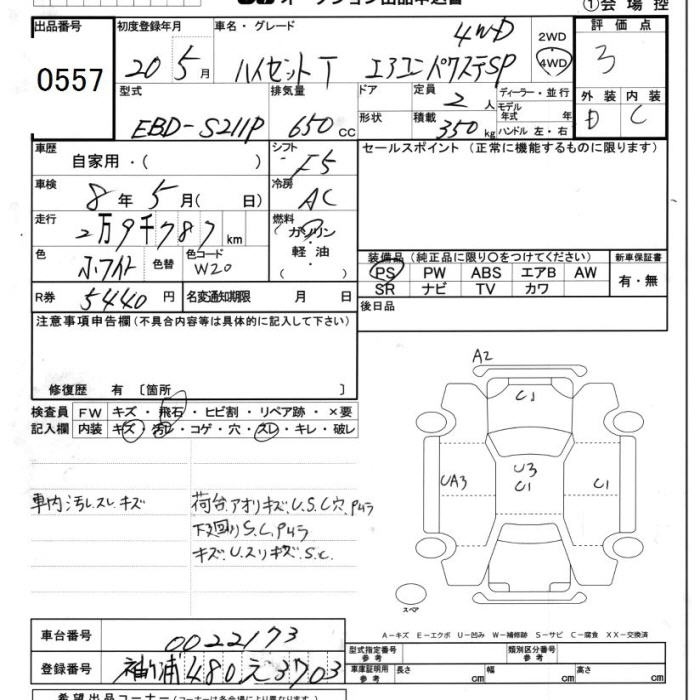 ①会場控
出品番号 初度登録年月 車名・グレード 2WD 評価点
0557 20 5月 ハイゼットT エアコンパワステSP 4WD 4WD 3
型式 排気量 ドア 定員 2人 ディーラー・並行 外装 内装
EBD-S211P 650cc 形状 積載 350kg モデル年式 年 ハンドル 左・右 D C
車歴 自家用・( ) シフト F5 セールスポイント (正常に機能するものに限ります)
車検 8年5月( 日) 冷房 AC
走行 2万9千787km 燃料 ガソリン・軽油・( )
色 ホワイト 色替 色コード W20 装備品 (純正品に限り〇をつけてください) 新車保証書
PS PW ABS エアB AW 有・無
SR ナビ TV カワ
R券 5440円 名変通知期限 月 日 後日品
注意事項申告欄 (不具合内容等は具体的に記入して下さい)
A2
修復歴 有 〔箇所 〕
C1
検査員 FW キズ・飛石・ヒビ割・リペア跡・×要
記入欄 内装 キズ・汚レ・コゲ・穴・スレ・キレ・破レ
U3
UA3 C1 C1
車内汚レ.スレ.キズ 荷台.アオリキズ.U.S.C穴.Pムラ
下廻りS.C.Pムラ
キズ.U.スリキズ.S.C.
スペア
A-キズ E-エクボ U-凹み W-補修跡 S-サビ C-腐食 XX-交換済
車台番号 0022173 型式指定番号 参考 類別区分番号 参考
登録番号 袖ヶ浦480え3703 車庫証明用 参考 長さ cm 幅 cm 高さ cm
希望出品コーナー